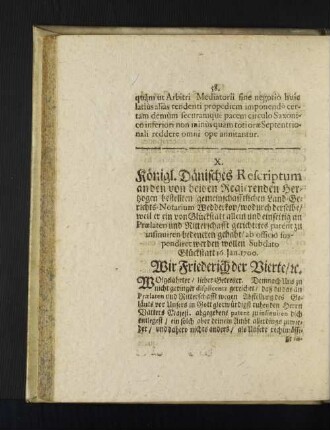 58.
quàm ut Arbitri Mediatorii sine negotio huic
latius alias tendenti propediem imponendo cer-
tam demùm securamque pacem circulo Saxoni-
co inferiori non minus quam toti oræ Septentrio-
nali reddere omni ope annitantur.
X.
Königl. Dänisches Rescriptum
an den von beiden Regierenden Her-
zogen bestellten gemeinschafftlichen Land-Ge-
richts-Notarium Wedderkop / wodurch derselbe /
weil er ein von Glückstatt allein und einseitig an
Prælaten und Ritterschafft gerichtetes patent zu
insinuiren bedencken gehabt / ab officio sus-
pendiret werden wollen Subdato
Glückstatt 16 Jan. 1700.
Wir Friederich der Vierte / ec.
WOhlgelahrter / lieber Getreuer. Demnach Uns zu
nicht geringer displicence gereichet / daß du das an
Prælaten und Ritterschafft wegen Abstellung des Ge-
läuts der Unsers in Gott glorwürdigst ruhenden Herrn
Vatters Majest. abgegebene patent zu insinuiren dich
entlegest / ein solch aber deinem Ambt allerdings zuwie-
der / und dahero nichts anders / als Unsere rechtmässi-
ge in-